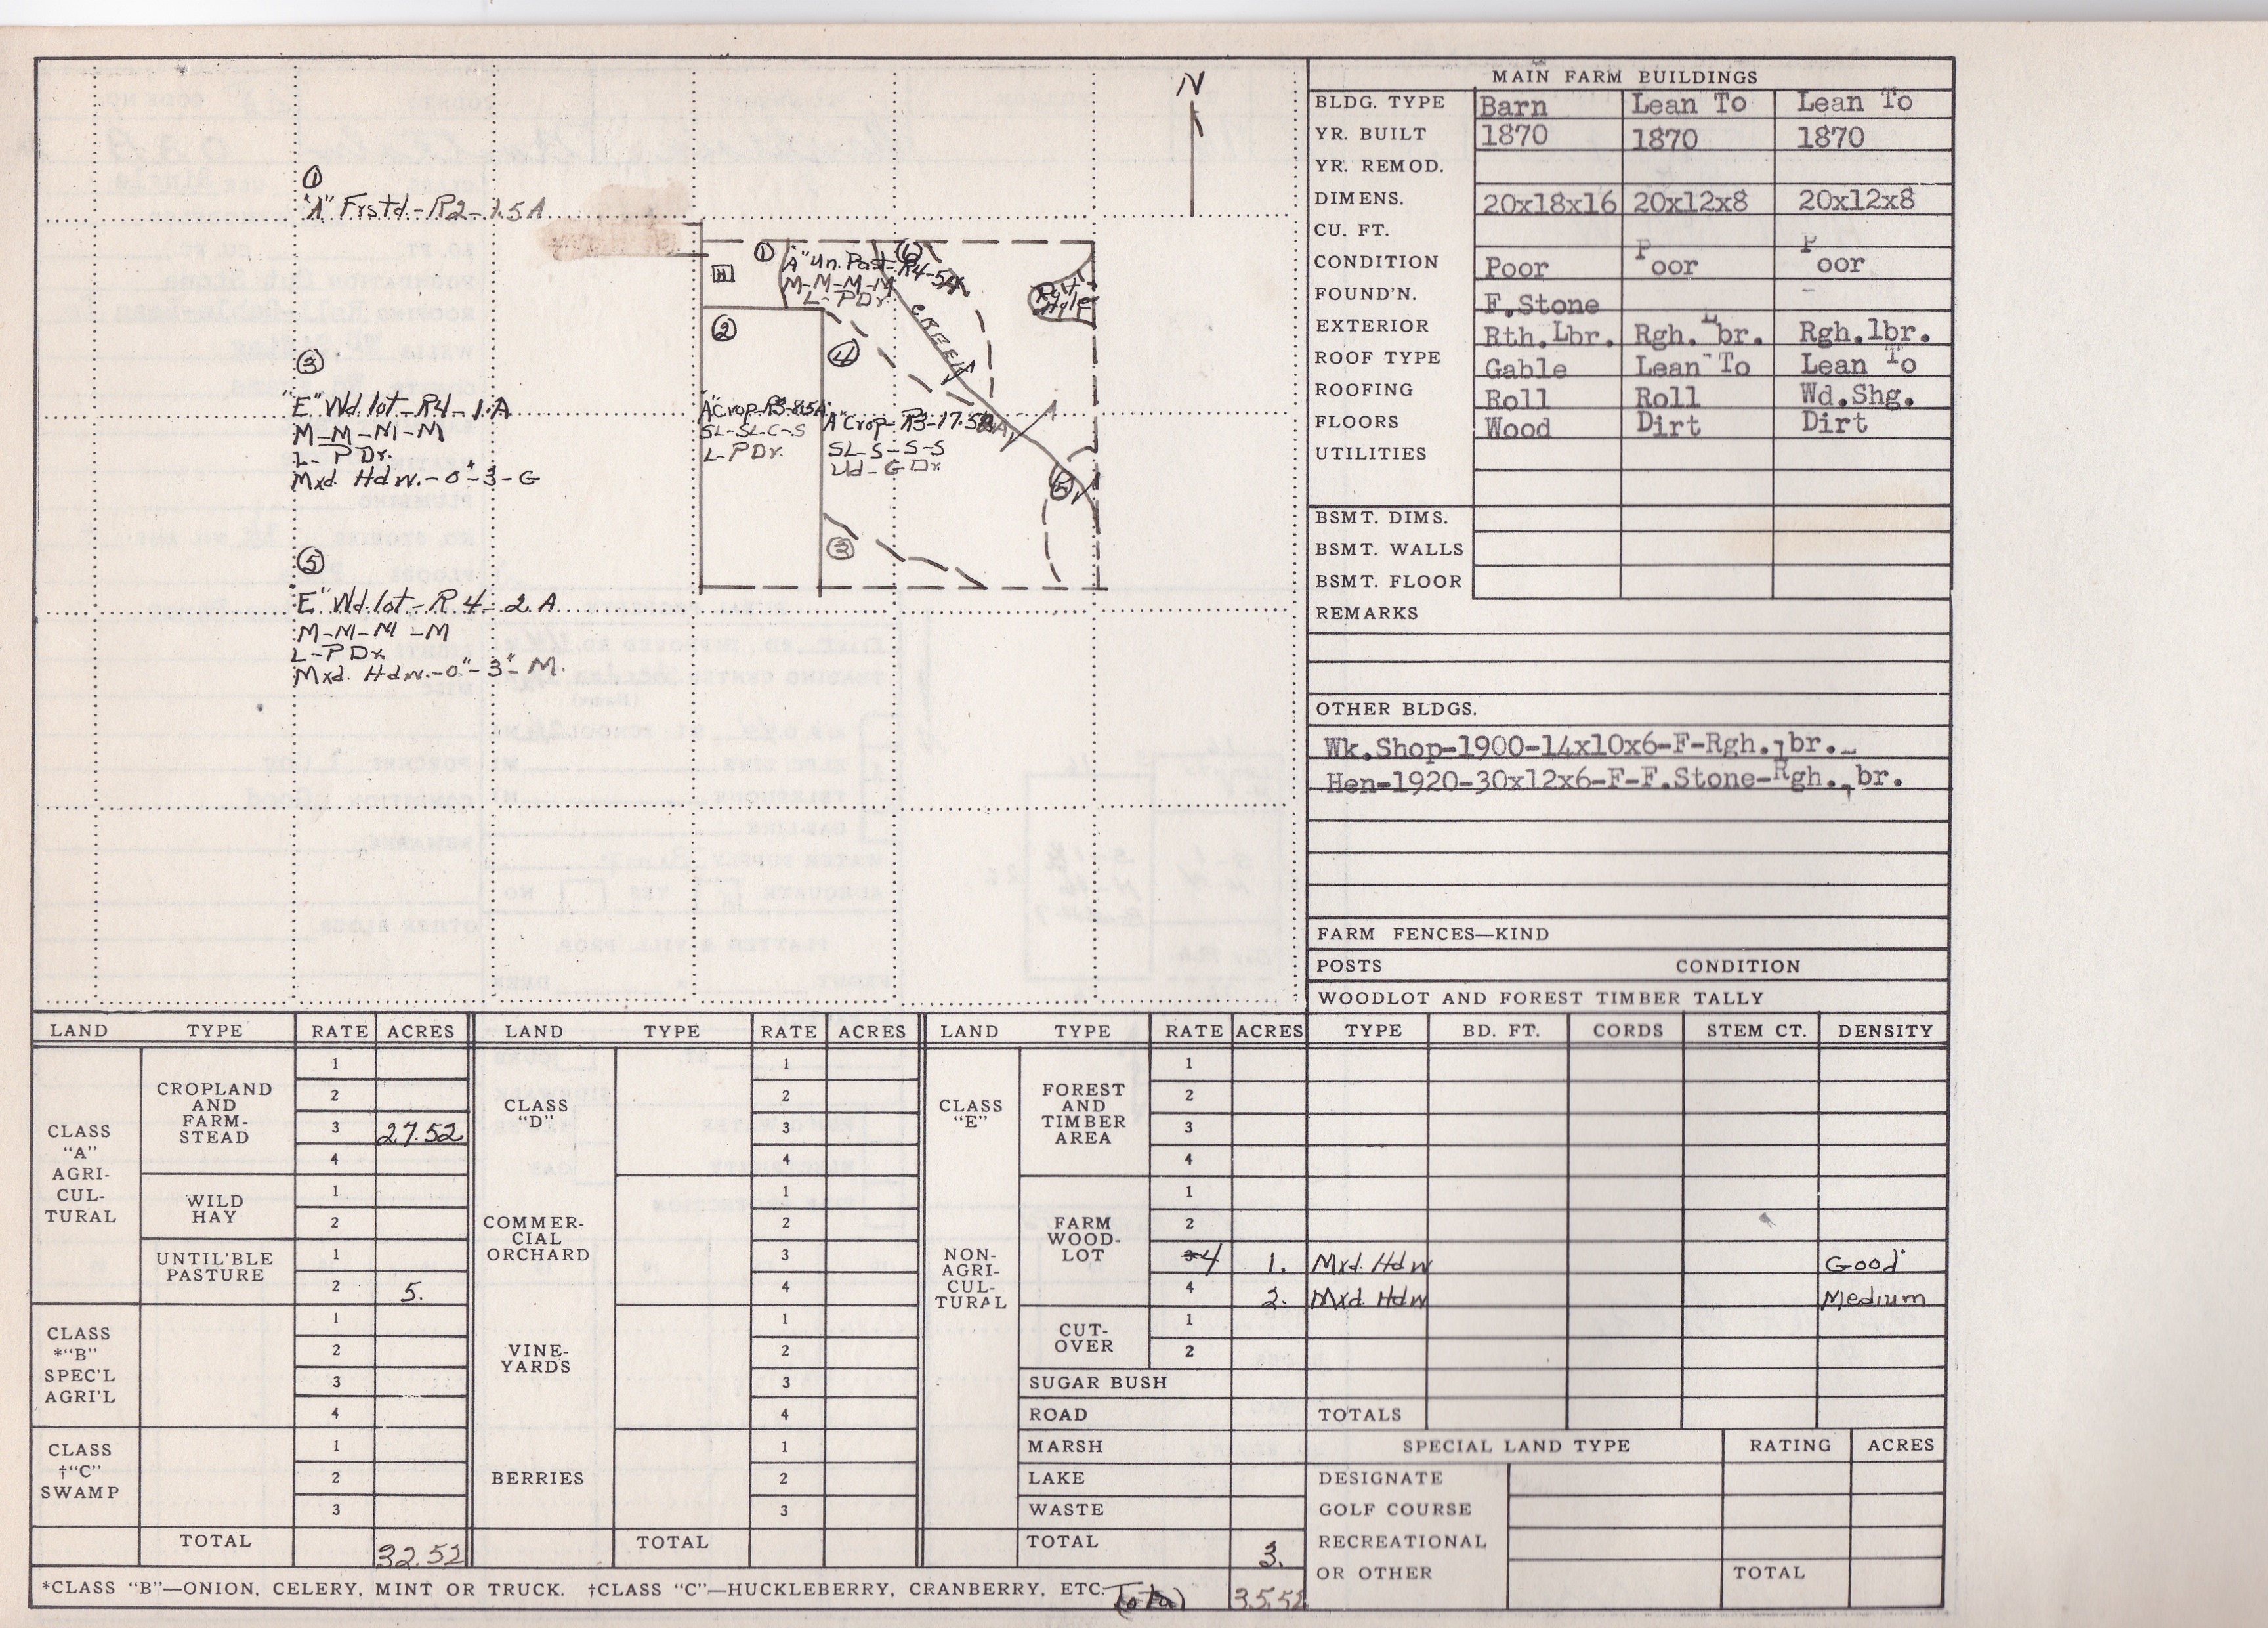 N
①
"A" Frstd-R2-1.5A
③
"E" Wd.lot-R4-1.A
M-M-M-M
L-PDr.
Mxd. Hdw.-0"-3-G
⑤
"E" Wd.lot-R4-2.A
M-M-M-M
L-PDr.
Mxd. Hdw.-0"-3"-M.
H
①
⑥
"A" Un. Past-R4-5A
M-M-M-M
L-PDr.
②
④
CREEK
"A" Crop-R3-8.5A
SL-SL-C-S
L-PDr.
"A" Crop-R3-17.52A
SL-S-S-S
Ud-G Dr
⑤
③
MAIN FARM BUILDINGS
BLDG. TYPE Barn Lean To Lean To
YR. BUILT 1870 1870 1870
YR. REMOD.
DIMENS. 20x18x16 20x12x8 20x12x8
CU. FT.
CONDITION Poor Poor Poor
FOUND'N. F.Stone
EXTERIOR Rth.Lbr. Rgh.Lbr. Rgh.lbr.
ROOF TYPE Gable Lean To Lean To
ROOFING Roll Roll Wd.Shg.
FLOORS Wood Dirt Dirt
UTILITIES
BSMT. DIMS.
BSMT. WALLS
BSMT. FLOOR
REMARKS
OTHER BLDGS.
Wk.Shop-1900-14x10x6-F-Rgh.lbr.-
Hen-1920-30x12x6-F-F.Stone-Rgh.lbr.
FARM FENCES—KIND
POSTS CONDITION
WOODLOT AND FOREST TIMBER TALLY
LAND TYPE RATE ACRES LAND TYPE RATE ACRES LAND TYPE RATE ACRES TYPE BD. FT. CORDS STEM CT. DENSITY
CLASS
"A"
AGRI-
CUL-
TURAL
CROPLAND
AND
FARM-
STEAD
1
2
3 27.52
4
WILD
HAY
1
2
UNTIL'BLE
PASTURE
1
2 5.
CLASS
*"B"
SPEC'L
AGRI'L
1
2
3
4
CLASS
†"C"
SWAMP
1
2
3
TOTAL 32.52
CLASS
"D"
COMMER-
CIAL
ORCHARD
VINE-
YARDS
BERRIES
1
2
3
4
1
2
3
4
1
2
3
4
1
2
3
TOTAL
CLASS
"E"
NON-
AGRI-
CUL-
TURAL
FOREST
AND
TIMBER
AREA
1
2
3
4
FARM
WOOD-
LOT
1
2
4 1. Mxd. Hdw Good
4 2. Mxd. Hdw Medium
CUT-
OVER
1
2
SUGAR BUSH
ROAD
MARSH
LAKE
WASTE
TOTAL 3.
TOTALS
SPECIAL LAND TYPE RATING ACRES
DESIGNATE
GOLF COURSE
RECREATIONAL
OR OTHER TOTAL
*CLASS "B"—ONION, CELERY, MINT OR TRUCK. †CLASS "C"—HUCKLEBERRY, CRANBERRY, ETC. Total 35.52